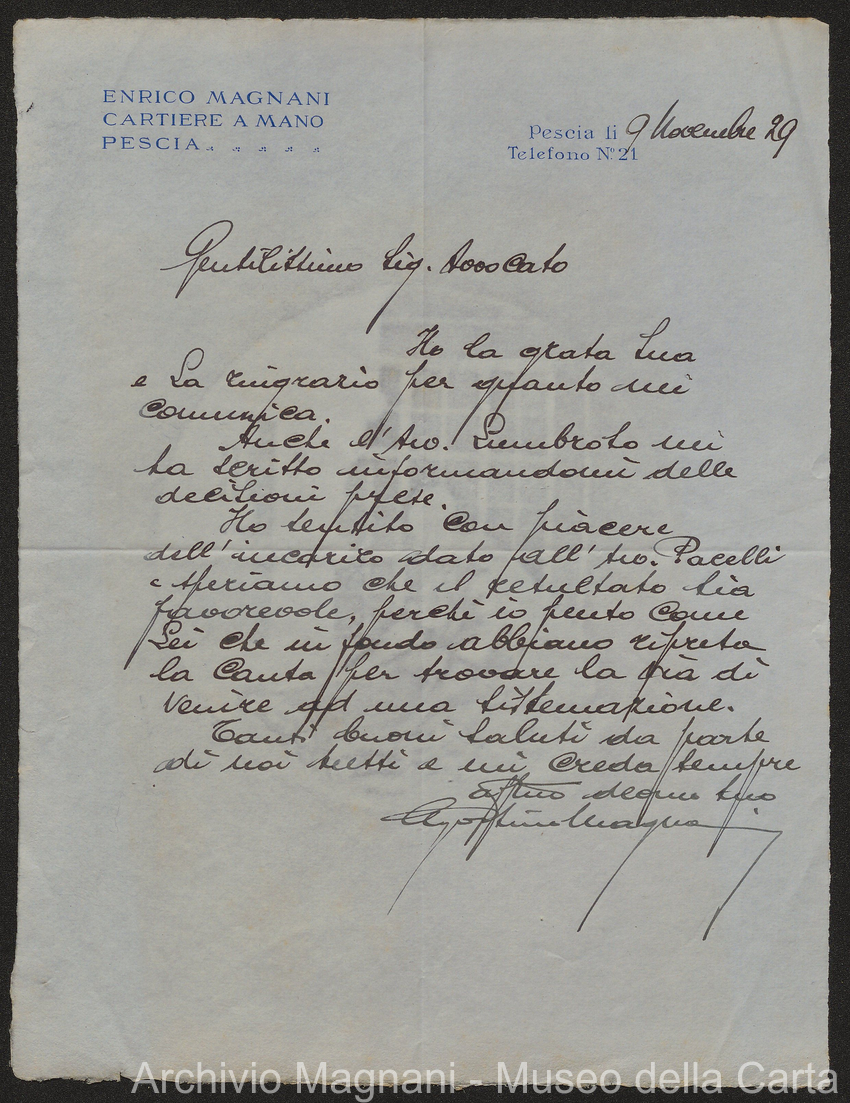 ENRICO MAGNANI
CARTIERE A MANO
PESCIA
Pescia li 9 Novembre 29
Telefono N.º 21
Gentilissimo Sig. Avvocato
Ho la grata Sua
e La ringrazio per quanto mi
comunica.
Anche l'Avv. Lumbroso mi
ha scritto informandomi delle
decisioni prese.
Ho sentito con piacere
dell'incarico dato all'Avv. Pacelli
e speriamo che il resultato sia
favorevole, perchè io penso come
Lei che in fondo abbiano ripreso
la Causa per trovare la via di
venire ad una sistemazione.
Tanti buoni saluti da parte
di noi tutti e mi creda sempre
aff.mo suo
Agostino Magnani
Archivio Magnani - Museo della Carta